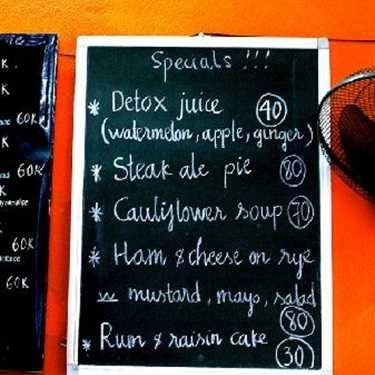 Specials !!!
* Detox juice 40
(watermelon, apple, ginger)
* Steak ale pie 80
* Cauliflower soup 70
* Ham & cheese on rye
mustard, mayo, salad
80
* Rum & raisin cake
30
K
K
K
60K
K
60K
K
60K
60K
60K